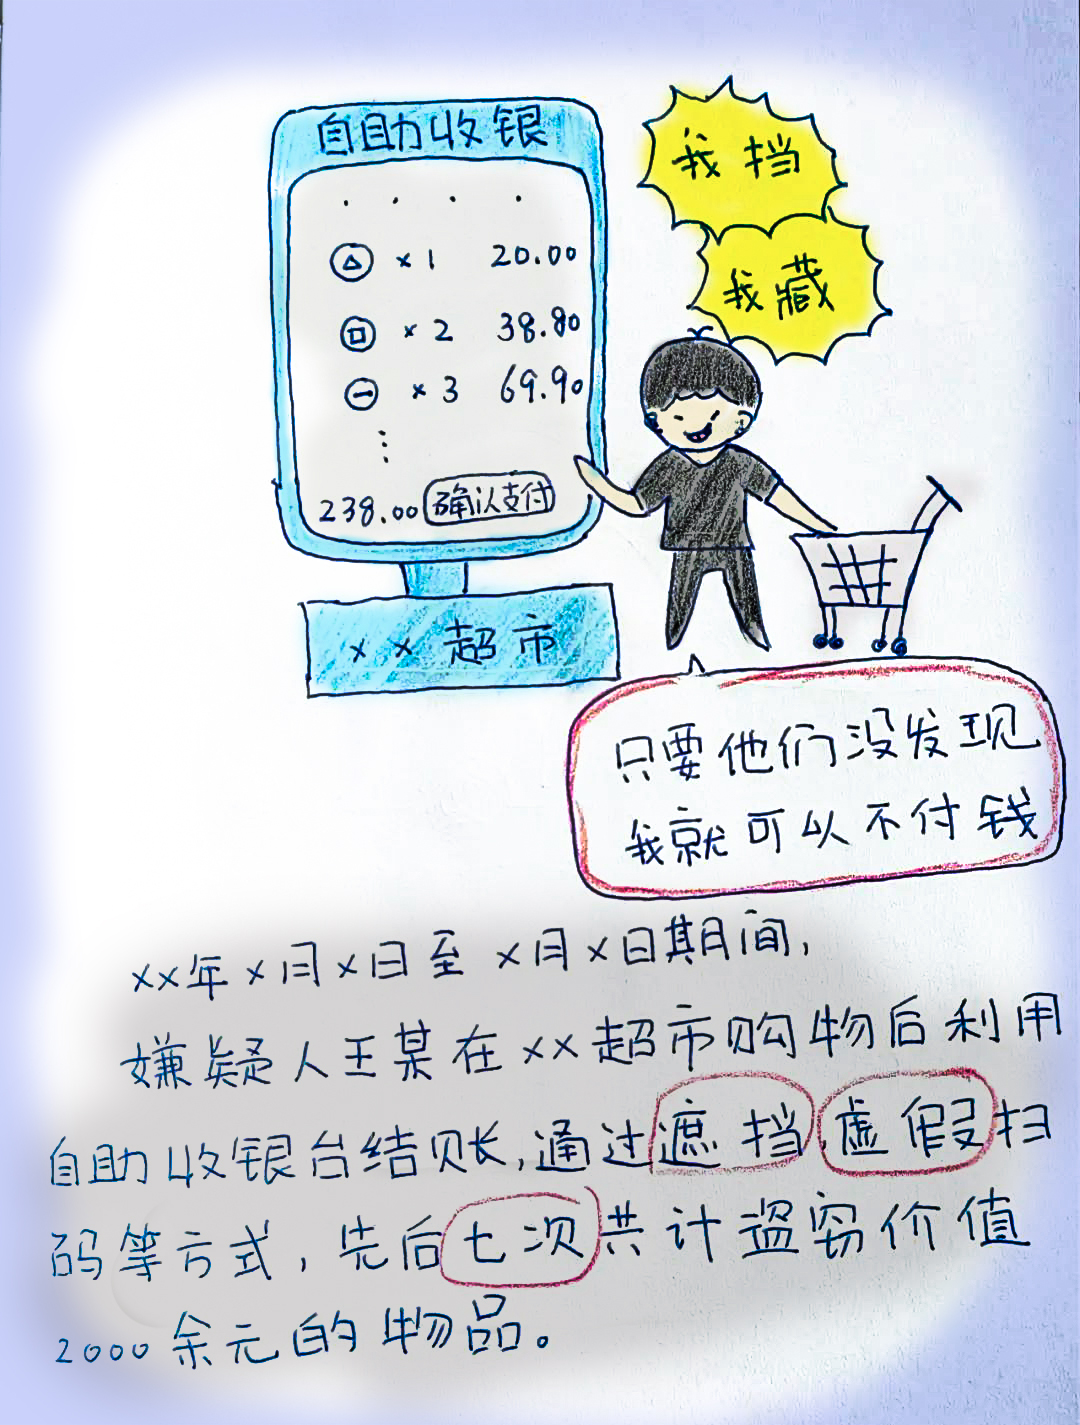 自助收银
· · · ·
×1 20.00
×2 38.80
×3 69.90
238.00 确认支付
××超市
我挡
我藏
只要他们没发现
我就可以不付钱
××年×月×日至×月×日期间,
嫌疑人王某在××超市购物后利用
自助收银台结账,通过遮挡、虚假扫
码等方式,先后七次共计盗窃价值
2000余元的物品。